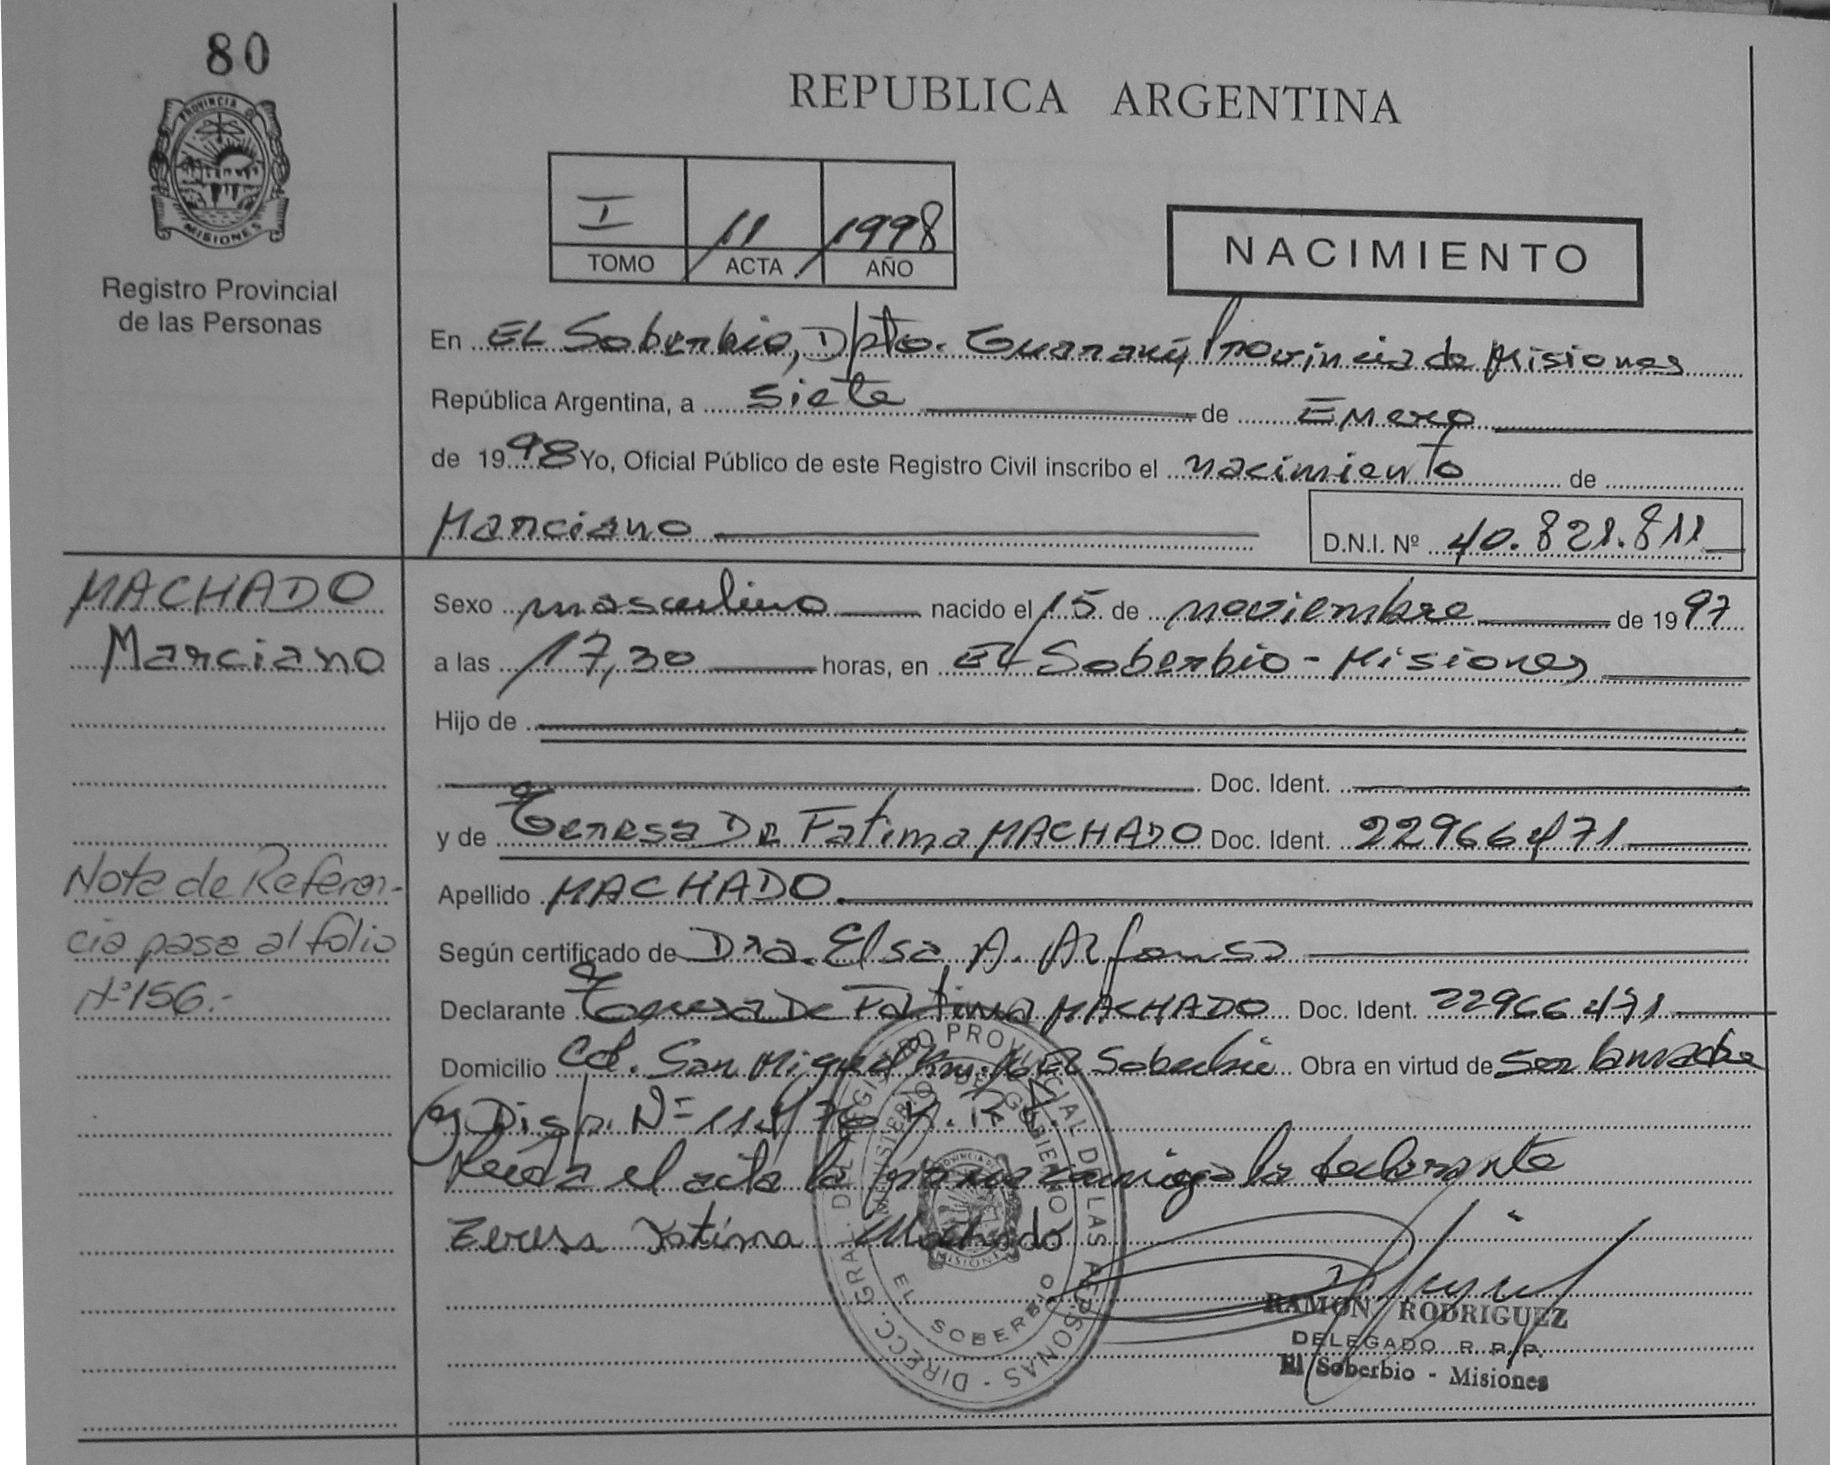 80
PROVINCIA DE
MISIONES
Registro Provincial
de las Personas
REPUBLICA ARGENTINA
I 11 1998
TOMO ACTA AÑO
NACIMIENTO
En EL Soberbio, Dpto. Guaraní Provincia de Misiones
República Argentina, a siete de Enero
de 1998 Yo, Oficial Público de este Registro Civil inscribo el nacimiento de
Marciano D.N.I. Nº 40.821.811
MACHADO
Marciano
Sexo masculino nacido el 15 de noviembre de 1997
a las 17,30 horas, en EL Soberbio - Misiones
Hijo de
Doc. Ident.
y de Teresa De Fatima MACHADO Doc. Ident. 22966471
Nota de Referen-
cia pasa al folio
Nº 156.-
Apellido MACHADO.
Según certificado de Dra. Elsa A. Alfonso
Declarante Teresa De Fatima MACHADO Doc. Ident. 22966471
Domicilio Col. San Miguel El Soberbio Obra en virtud de ser la madre
y Disp. Nº
Leída el acta la firma conmigo la declarante
Teresa Fatima Machado
DIRECC. GRAL. DEL REGISTRO PROVINCIAL DE LAS PERSONAS
MINISTERIO DE GOBIERNO
PROVINCIA DE
MISIONES
EL SOBERBIO
RAMON RODRIGUEZ
DELEGADO R. P. P.
El Soberbio - Misiones